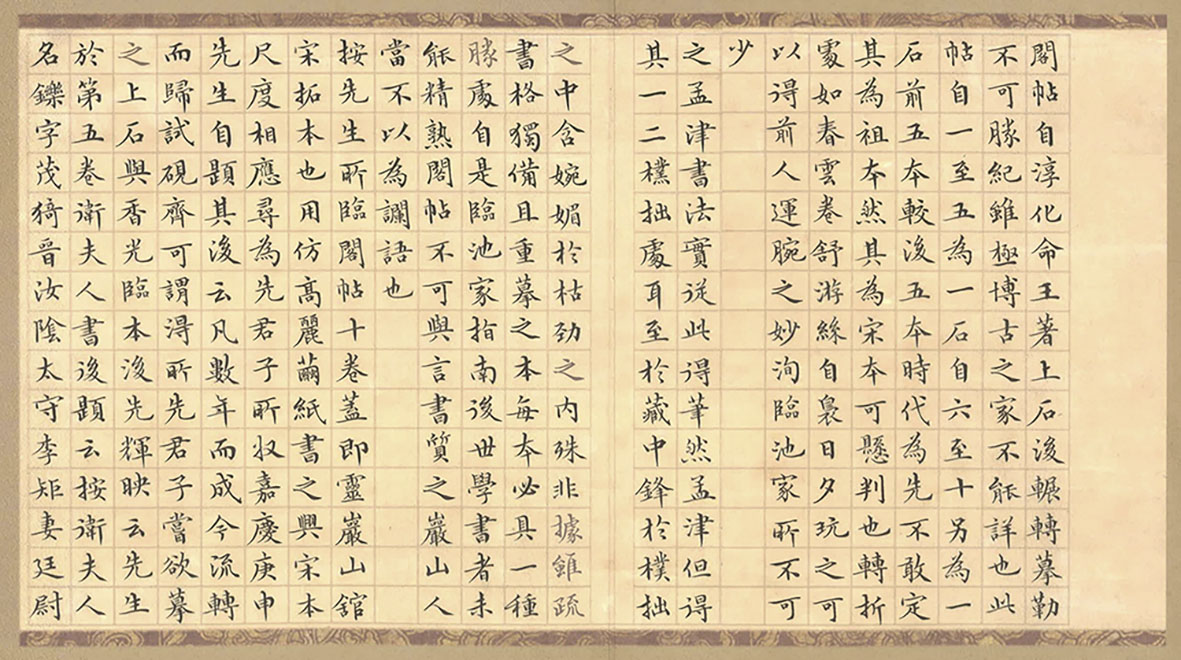 閣帖自淳化命王著上石後輾轉摹勒
不可勝紀雖極博古之家不能詳也此
帖自一至五為一石自六至十另為一
石前五本較後五本時代為先不敢定
其為祖本然其為宋本可懸判也轉折
處如春雲卷舒游絲自裊日夕玩之可
以得前人運腕之妙洵臨池家所不可
少
之孟津書法實從此得筆然孟津但得
其一二樸拙處耳至於藏中鋒於樸拙
之中含婉媚於枯劲之内殊非據雖疏
書格獨備且重摹之本每本必具一種
勝處自是臨池家指南後世學書者未
能精熟閣帖不可與言書質之巖山人
當不以為讕語也
按先生所臨閣帖十卷蓋即靈巖山館
宋拓本也用仿高麗繭紙書之興宋本
尺度相應尋為先君子所収嘉慶庚申
先生自題其後云凡數年而成今流轉
而歸試硯齊可謂得所先君子嘗欲摹
之上石與香光臨本後先輝映云先生
於第五卷衛夫人書後題云按衛夫人
名鑠字茂猗晉汝陰太守李矩妻廷尉